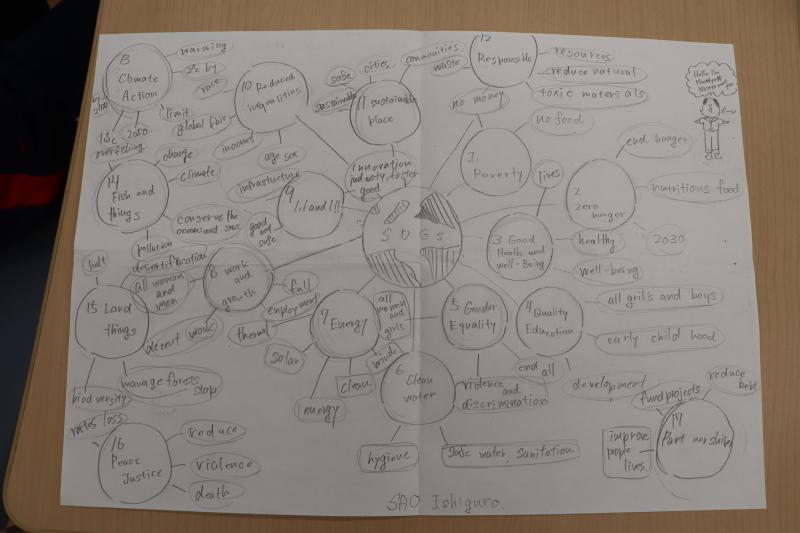 13
Climate
Action
warming
2°c by
limit
2050
overfishing
10 Reduced
inequalities
race
global fair
incomes
age sex
11 sustainable
place
safe
cities
sustainable
communities
12
Responsible
waste
resources
reduce natural
toxic materials
Hello I'm
1.
Poverty
no money
no food
2
zero
hunger
end hunger
nutritious food
2030
3 Good
Health and
well-Being
lives
healthy
well-being
4 Quality
Education
all gril's and boys
early child hood
development
5 Gender
Equality
all
women
and
girls
end all
violence and
discrimination
6
Clean
water
hygieve
safe water, sanitation
7
Energy
thermal
solar
energy
clean
wind
8 work
and
growth
full
employment
decent work
all woman
and
men
9
I, I and I!!!
innovation
industry, foster
good
infrastucture
good and
safe
SDGs
14
Fish and
things
change
climate
conserve the
oceans and seas
pollution
15 Land
things
halt
desertification
manage forests
stop
biodiversity
loss
16
Peace
Justice
reduce
violence
death
17
Partnership
fund projects
reduce
debt
improve
people
lives.
SAO Ishiguro.